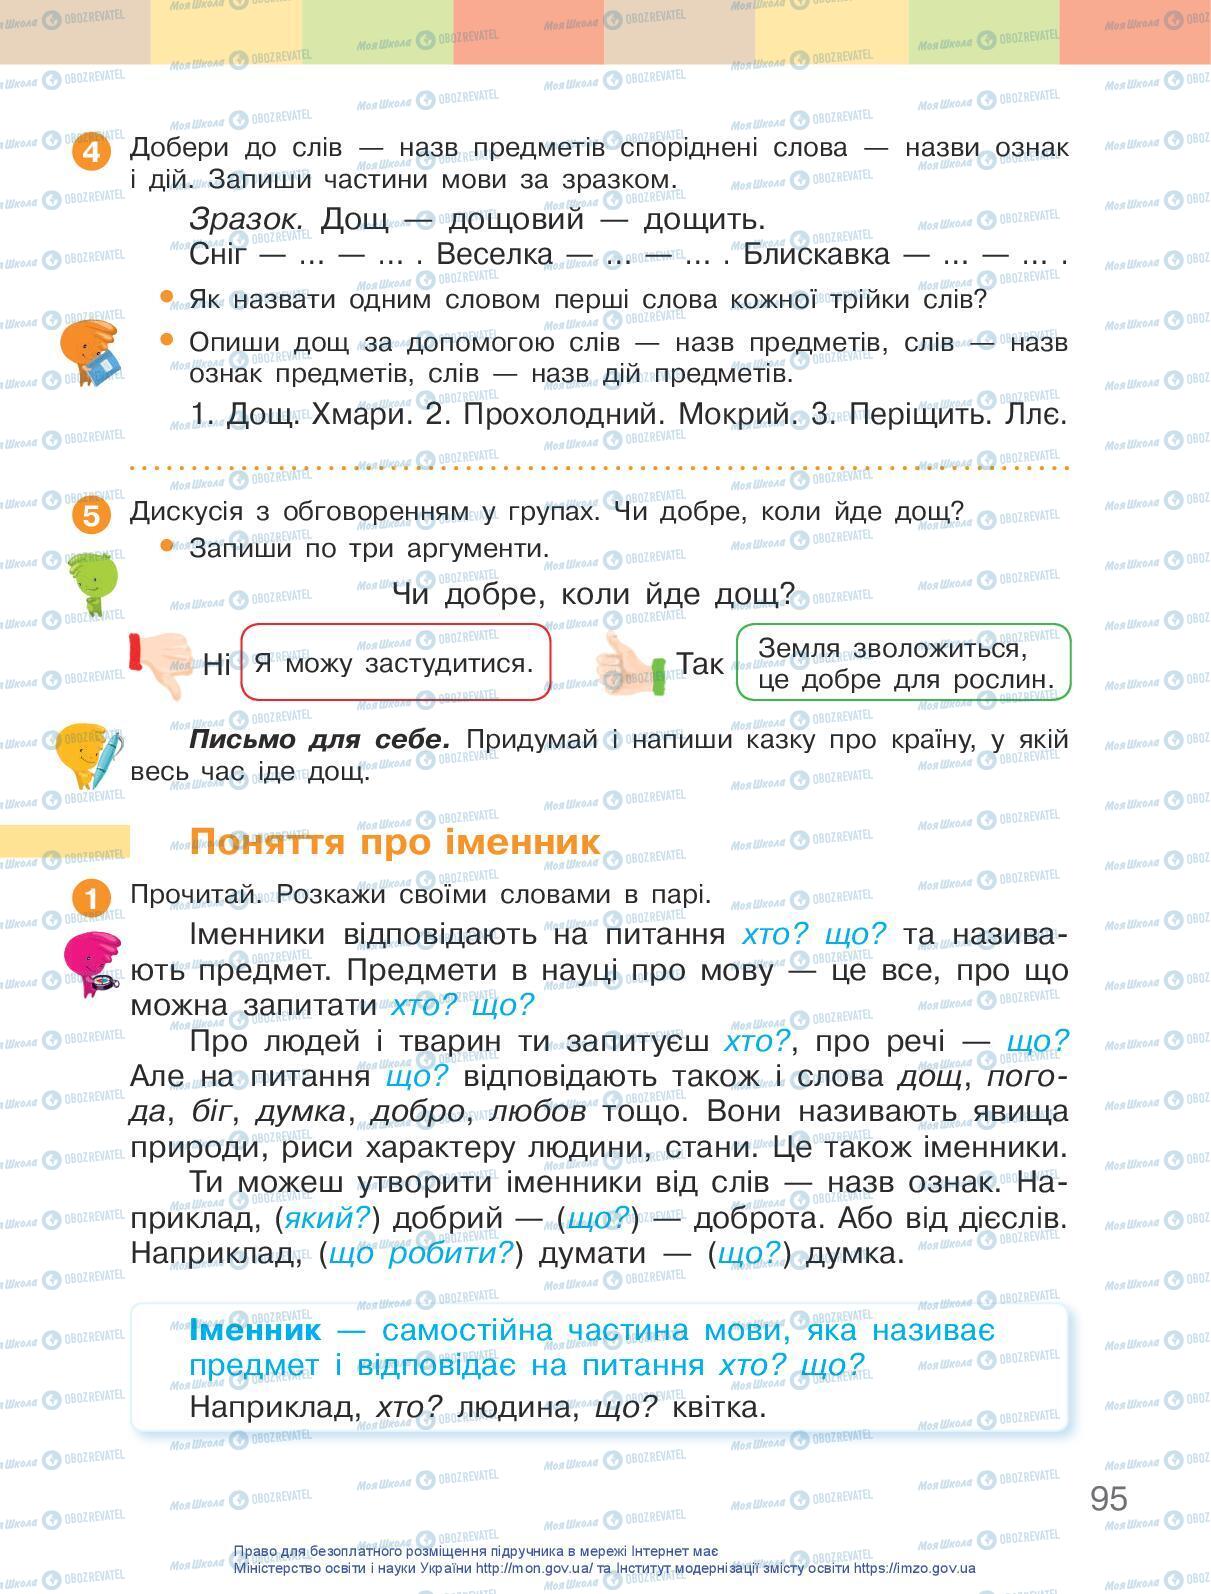 4 Добери до слів — назв предметів споріднені слова — назви ознак
і дій. Запиши частини мови за зразком.
Зразок. Дощ — дощовий — дощить.
Сніг — ... — ... . Веселка — ... — ... . Блискавка — ... — ... .
• Як назвати одним словом перші слова кожної трійки слів?
• Опиши дощ за допомогою слів — назв предметів, слів — назв
ознак предметів, слів — назв дій предметів.
1. Дощ. Хмари. 2. Прохолодний. Мокрий. 3. Періщить. Ллє.
5 Дискусія з обговоренням у групах. Чи добре, коли йде дощ?
• Запиши по три аргументи.
Чи добре, коли йде дощ?
Ні Я можу застудитися.
Так Земля зволожиться,
це добре для рослин.
Письмо для себе. Придумай і напиши казку про країну, у якій
весь час іде дощ.
Поняття про іменник
1 Прочитай. Розкажи своїми словами в парі.
Іменники відповідають на питання хто? що? та назива-
ють предмет. Предмети в науці про мову — це все, про що
можна запитати хто? що?
Про людей і тварин ти запитуєш хто?, про речі — що?
Але на питання що? відповідають також і слова дощ, пого-
да, біг, думка, добро, любов тощо. Вони називають явища
природи, риси характеру людини, стани. Це також іменники.
Ти можеш утворити іменники від слів — назв ознак. На-
приклад, (який?) добрий — (що?) — доброта. Або від дієслів.
Наприклад, (що робити?) думати — (що?) думка.
Іменник — самостійна частина мови, яка називає
предмет і відповідає на питання хто? що?
Наприклад, хто? людина, що? квітка.
95
Право для безоплатного розміщення підручника в мережі Інтернет має
Міністерство освіти і науки України http://mon.gov.ua/ та Інститут модернізації змісту освіти https://imzo.gov.ua
Моя Школа OBOZREVATEL